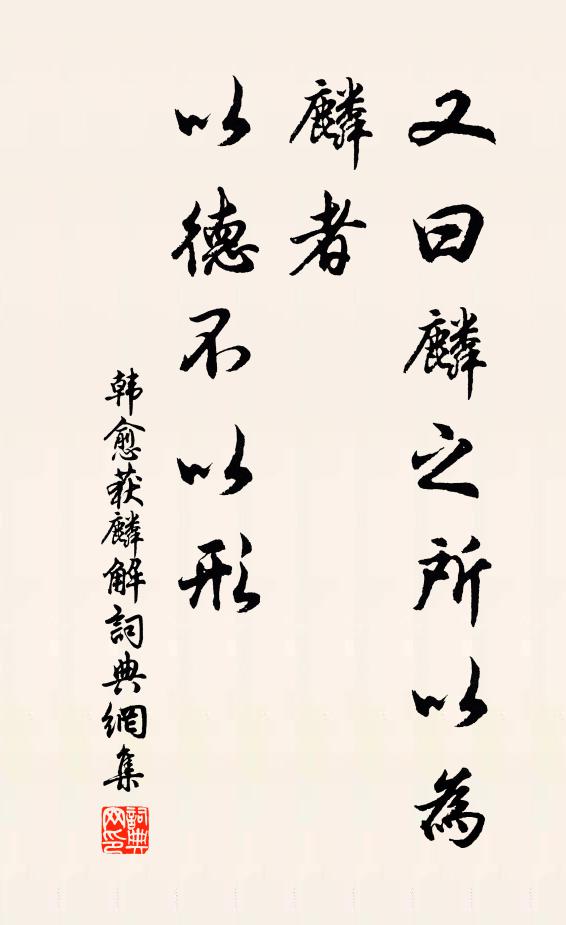 又曰麟之所以為
麟者
以德不以形
韩愈获麟解詞典網集
詞典
网印